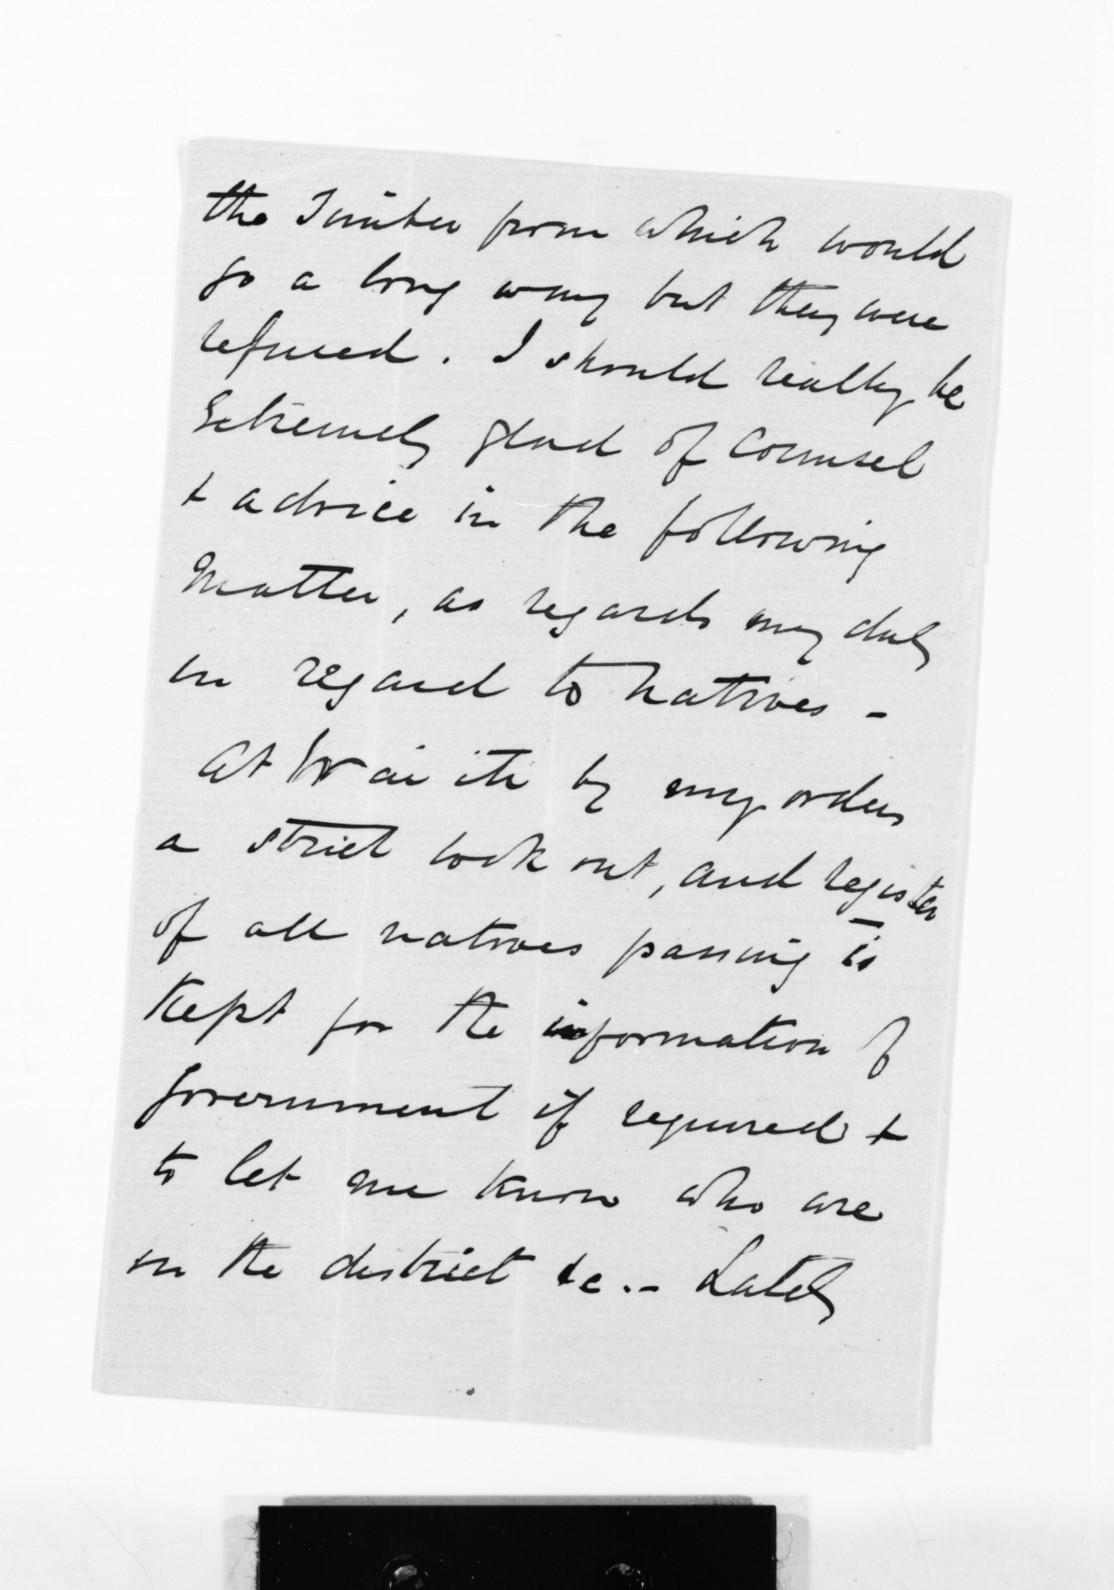 the Timber from which would
go a long way but they were
refused. I should really be
Extremely glad of Counsel
& advice in the following
Matter, as regards my duty
in regard to Natives -
At Wai iti by my orders
a strict look out, and register
of all natives passing is
Kept for the information of
Government if required &
to let me know who are
in the district &c. - Lately